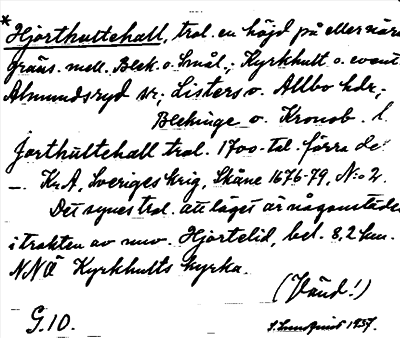 * Hjorthuttehall, trol. en höjd på eller nära
gräns. mell. Blek. o. Smål.; Kyrkhult o. event
Almundsryd sr; Listers o. Allbo hdr;
Blekinge o. Kronob. l.
Jorthuttehall trol. 1700-tal. förra de
—. KrA, Sveriges krig, Skåne 1676-79, N:o 2.
Det synes trol. att läget är någonstädes
i trakten av nuv. Hjortelid, bel. 8,2 km.
NNÖ Kyrkhults kyrka.
(Vänd!)
G.10. S. Lundquist 1957.